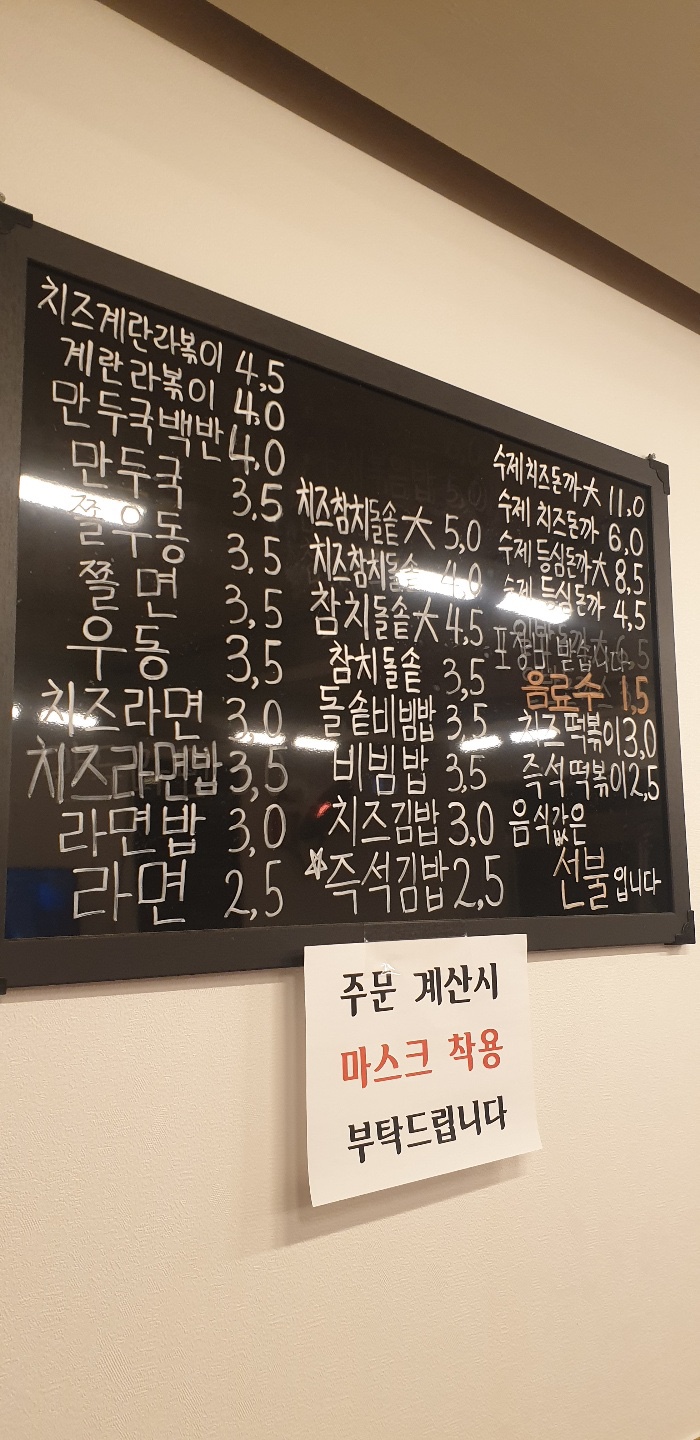 치즈계란라볶이 4,5
계란라볶이 4,0
만두국백반 4,0
만두국 3.5
쫄우동 3.5
쫄면 3,5
우동 3,5
치즈라면 3,0
치즈라면밥 3,5
라면밥 3,0
라면 2,5
치즈참치돌솥大 5,0
치즈참치돌솥 4,0
참치돌솥大 4,5
참치돌솥 3,5
돌솥비빔밥 3,5
비빔밥 3,5
치즈김밥 3,0
☆즉석김밥 2,5
수제치즈돈까大 11,0
수제 치즈돈까 6,0
수제 등심돈까大 8,5
수제 등심돈까 4,5
받습니다
음료수 1,5
치즈떡볶이 3,0
즉석떡볶이 2,5
음식값은
선불입니다
주문 계산시
마스크 착용
부탁드립니다